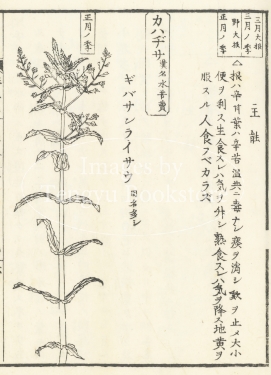 三月大根
三月ノ季
野大根
正月ノ季
主能
△根ハ辛甘葉ハ辛苦温共ニ毒ナシ痰ヲ消シ欬ヲ止メ大小
便ヲ利ス生食スレハ気ヲ升シ熟食スレハ気ヲ降ス地黄ヲ
服スル人食フベカラス
カハヂサ
漢名水苦蕒
ギバサシライサウ
同名多シ
正月ノ季
Images by